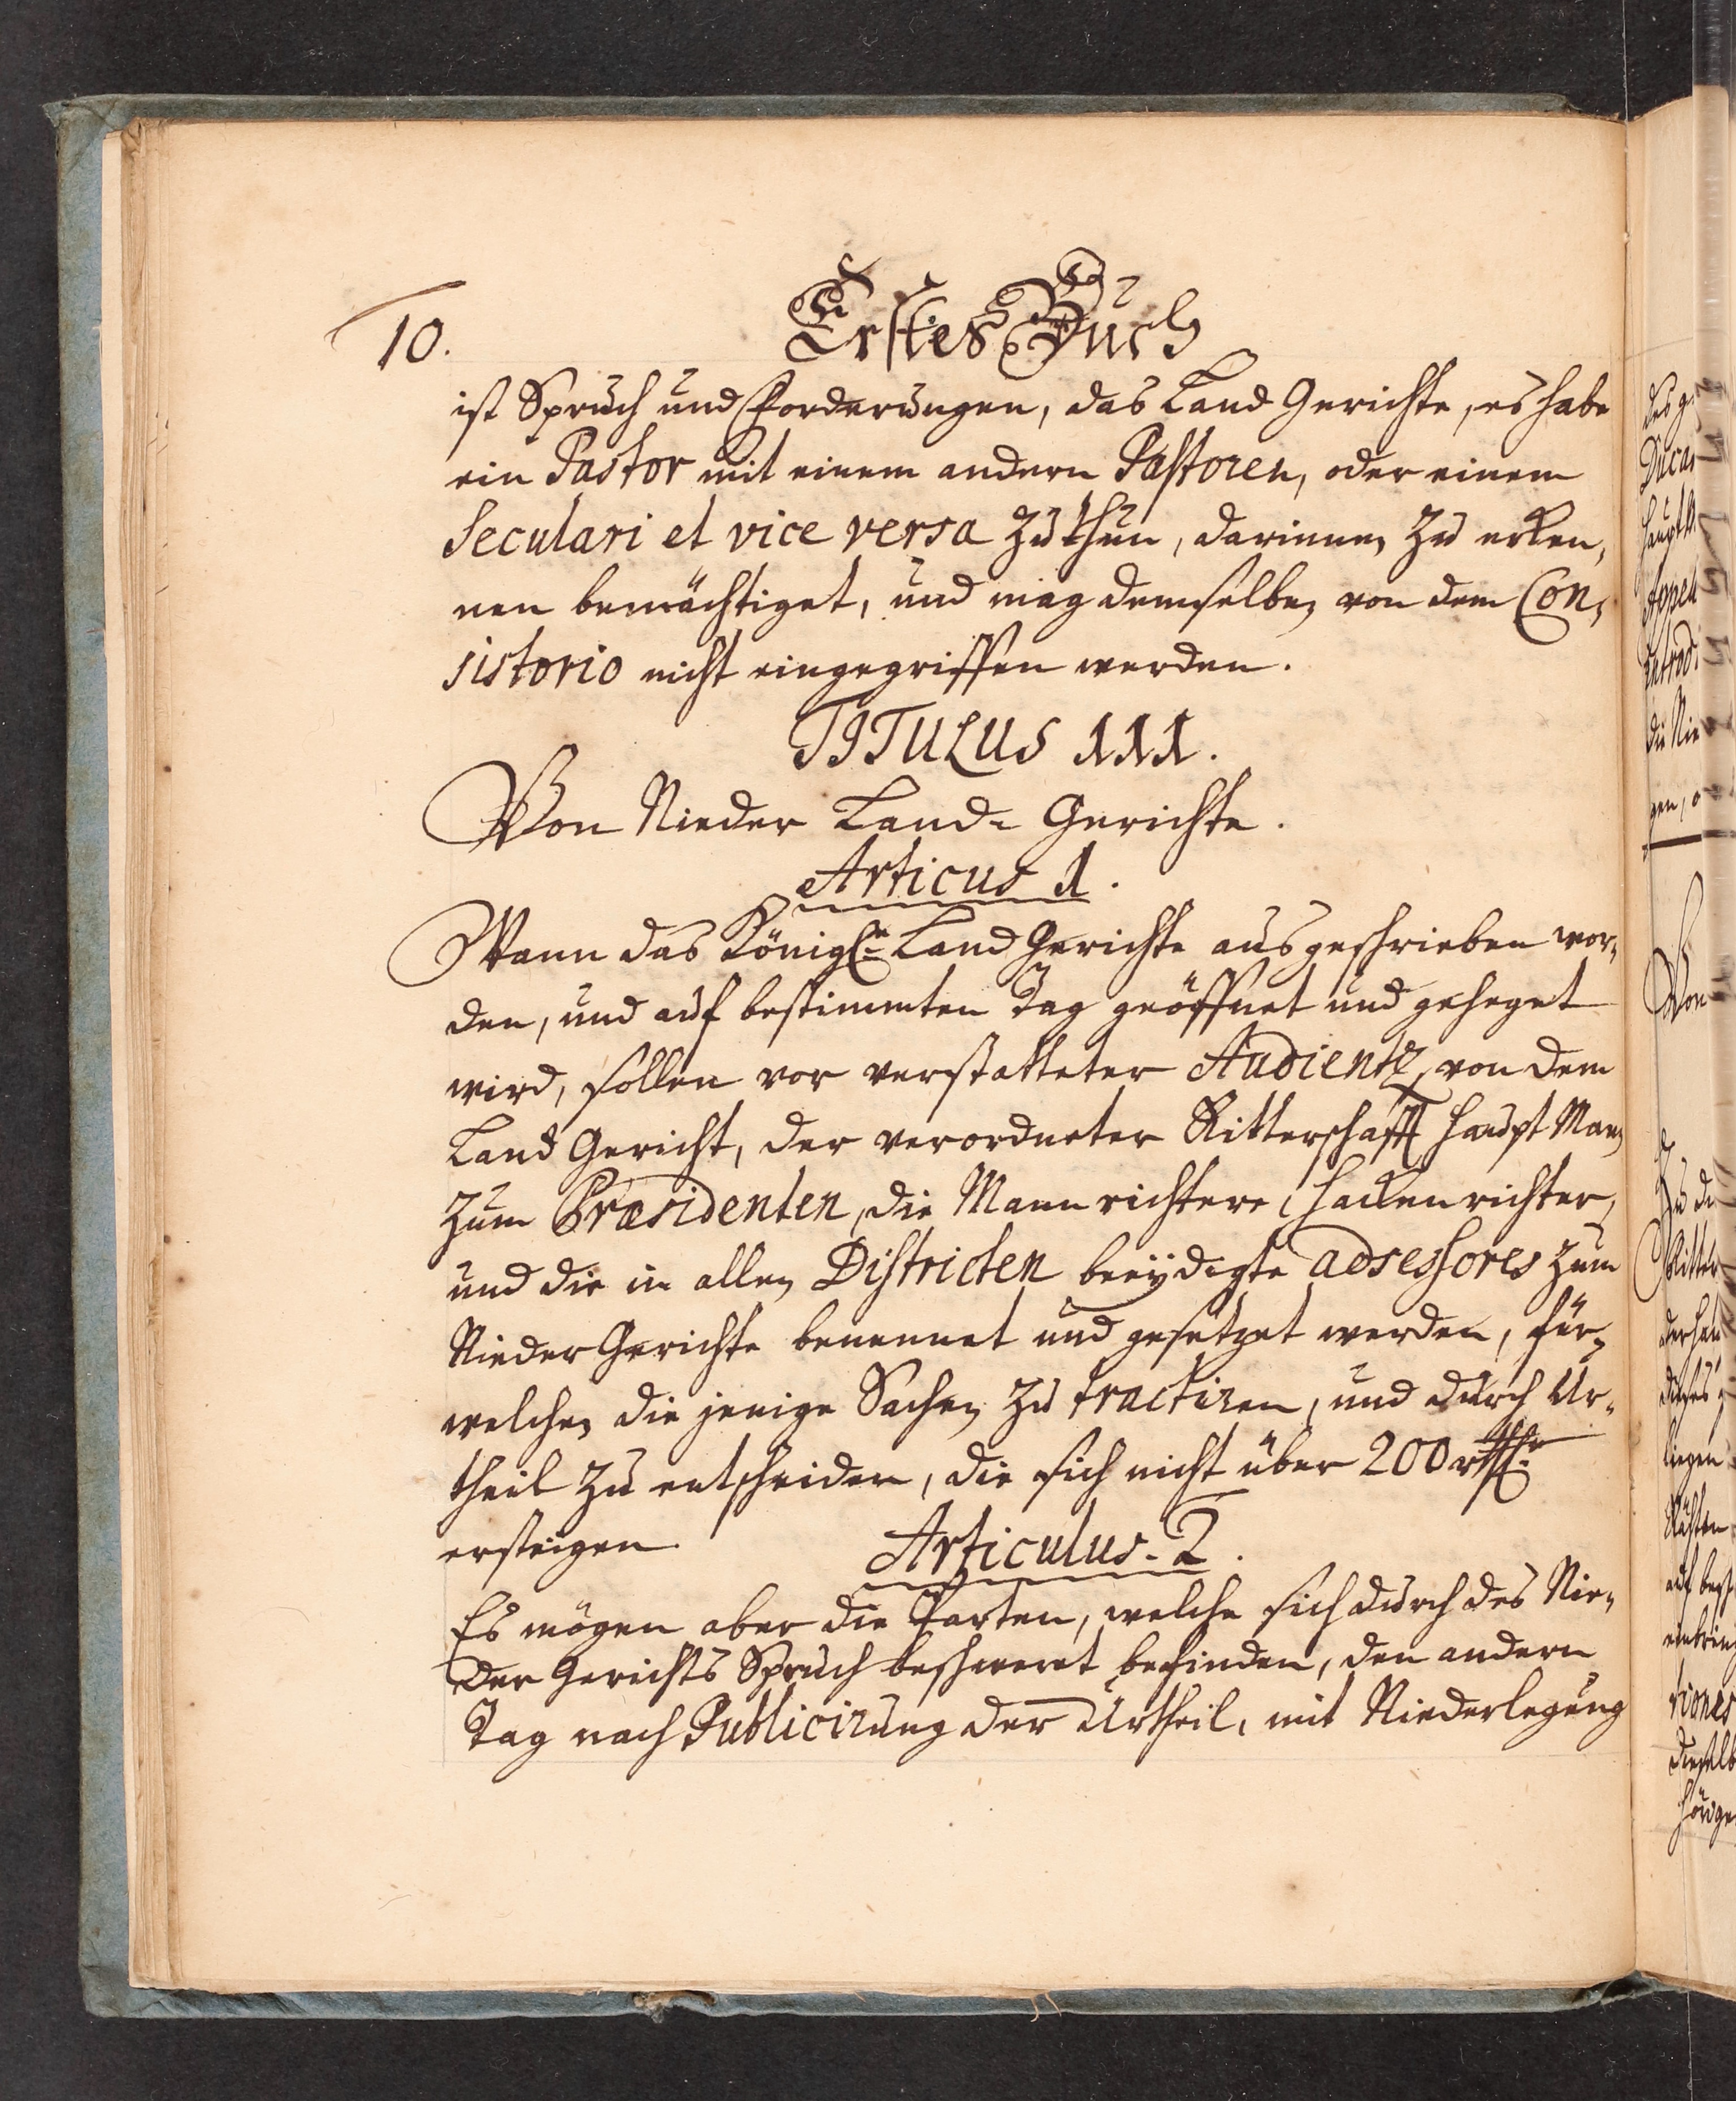 10.
Erstes Buch
ist Spruch und Forderungen, das Land Gerichte, es habe
ein Pastor mit einem andern Pastoren, oder einem
Seculari et vice versa zu thun, darinnen zu erken,
nen bemächtiget, und mag demselben von dem Con,
sistorio nicht eingegriffen werden.
TITULUS III.
Von Nieder Land- Gerichte.
Articus 1.
Wann das Königl: Land Gerichte ausgeschrieben wor-
den, und auf bestimmten Tag geöffnet und geheget
wird, sollen vor verstatteter Audientz, von dem
Land Gericht, der verordneter Ritterschafft Haupt Man
zum Præsidenten, die Mannrichtere, Hackenrichter,
und die in allen Districten beeÿdigte adsessores zum
Nieder Gerichte benennet und gesetzet werden, für
welchen die jenige Sachen zu tractiren, und durch Ur-
theil zu entscheiden, die sich nicht über 200 rthlr
ersteigen.
Articulus. 2.
Es mögen aber die Parten, welche sich durch des Nie-
der Gerichts Spruch beschweret befinden, den andern
Tag nach Publicirung der Urtheil, mit Niederlegung